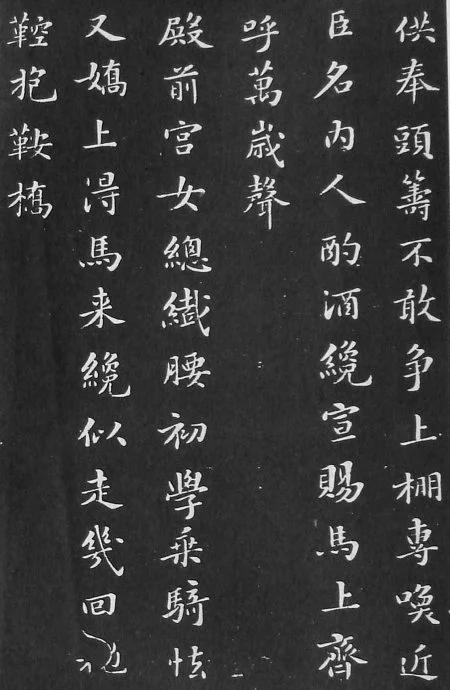 供奉頭籌不敢争上棚專喚近
臣名内人酌酒纔宣賜馬上齊
呼萬歲聲
殿前宮女總纖腰初學乗騎怯
又嬌上淂馬来纔似走幾回
鞚抱鞍橋